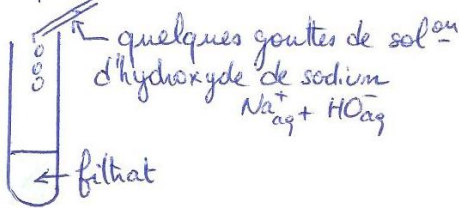 quelques gouttes de sol^on
d'hydroxyde de sodium
Na⁺aq + HO⁻aq
filtrat